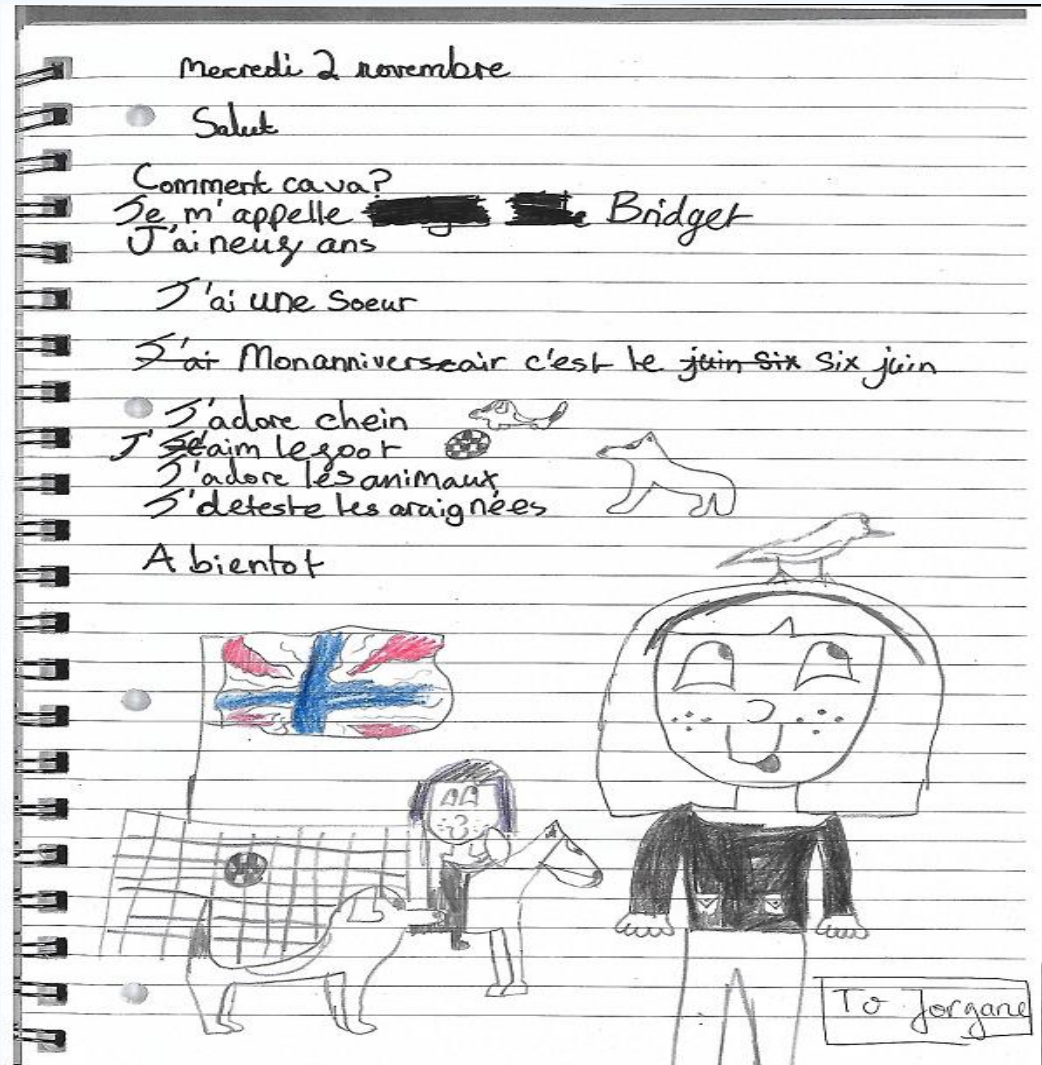 Mercredi 2 novembre
Salut
Comment ca va?
Je m'appelle Bridget
J'ai neuf ans
J'ai une Soeur
J'ai Mon anniverseair c'est le juin six six juin
J'adore chein
J' aim le foot
J'adore les animaux
J'deteste les araignées
A bientot
To Jorgane